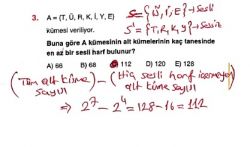 3. A = {T, Ü, R, K, İ, Y, E}
S = {Ü, İ, E} → Sesli
kümesi veriliyor.
S' = {T, R, K, Y} → Sessiz
Buna göre A kümesinin alt kümelerinin kaç tanesinde
en az bir sesli harf bulunur?
A) 66 B) 68 112 D) 120 E) 128
(Tüm alt küme sayısı) - (Hiç sesli harf içermeyen alt küme sayısı)
⇒ 2⁷ - 2⁴ = 128 - 16 = 112